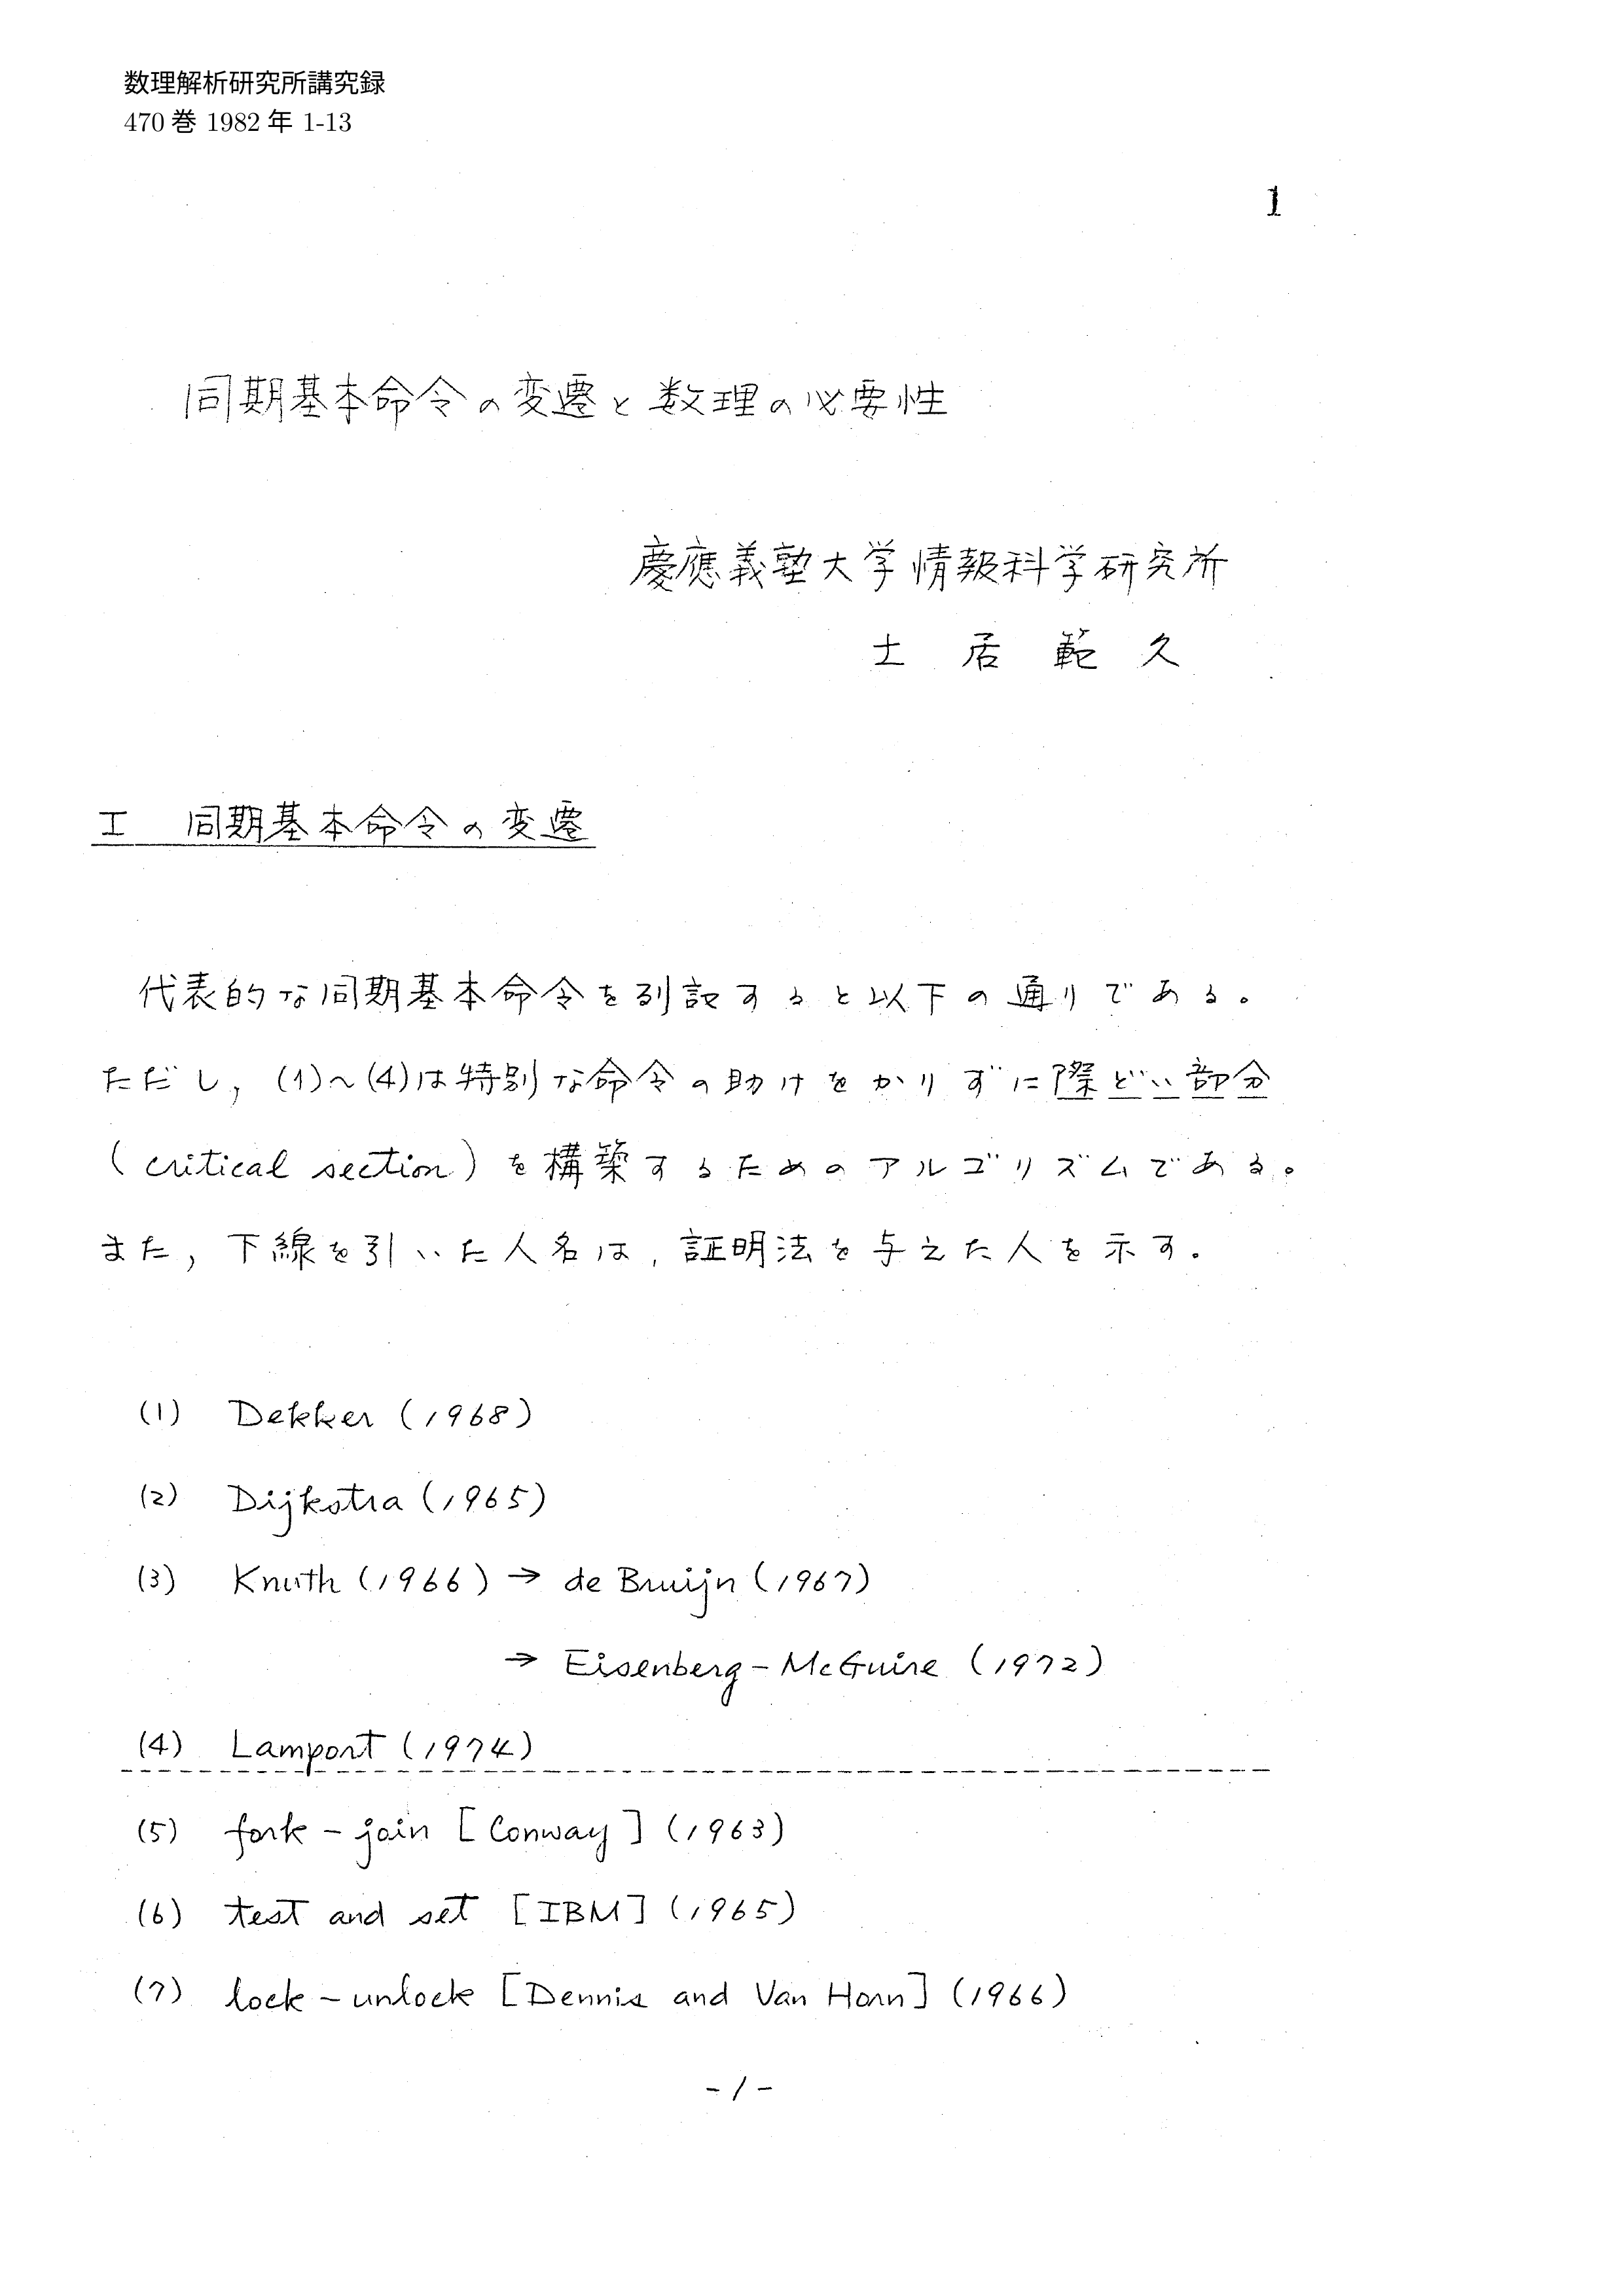 数理解析研究所講究録
470 巻 1982 年 1-13
1
同期基本命令の変遷と数理の必要性
慶應義塾大学情報科学研究所
土居範久
I 同期基本命令の変遷
代表的な同期基本命令を列記すると以下の通りである。
ただし, (1)~(4)は特別な命令の助けをかりずに際どい部分
(critical section)を構築するためのアルゴリズムである。
また, 下線を引いた人名は, 証明法を与えた人を示す.
(1) Dekker (1968)
(2) Dijkstra (1965)
(3) Knuth (1966) → de Bruijn (1967)
→ Eisenberg-McGuire (1972)
(4) Lamport (1974)
(5) fork-join [Conway] (1963)
(6) test and set [IBM] (1965)
(7) lock-unlock [Dennis and Van Horn] (1966)
-1-